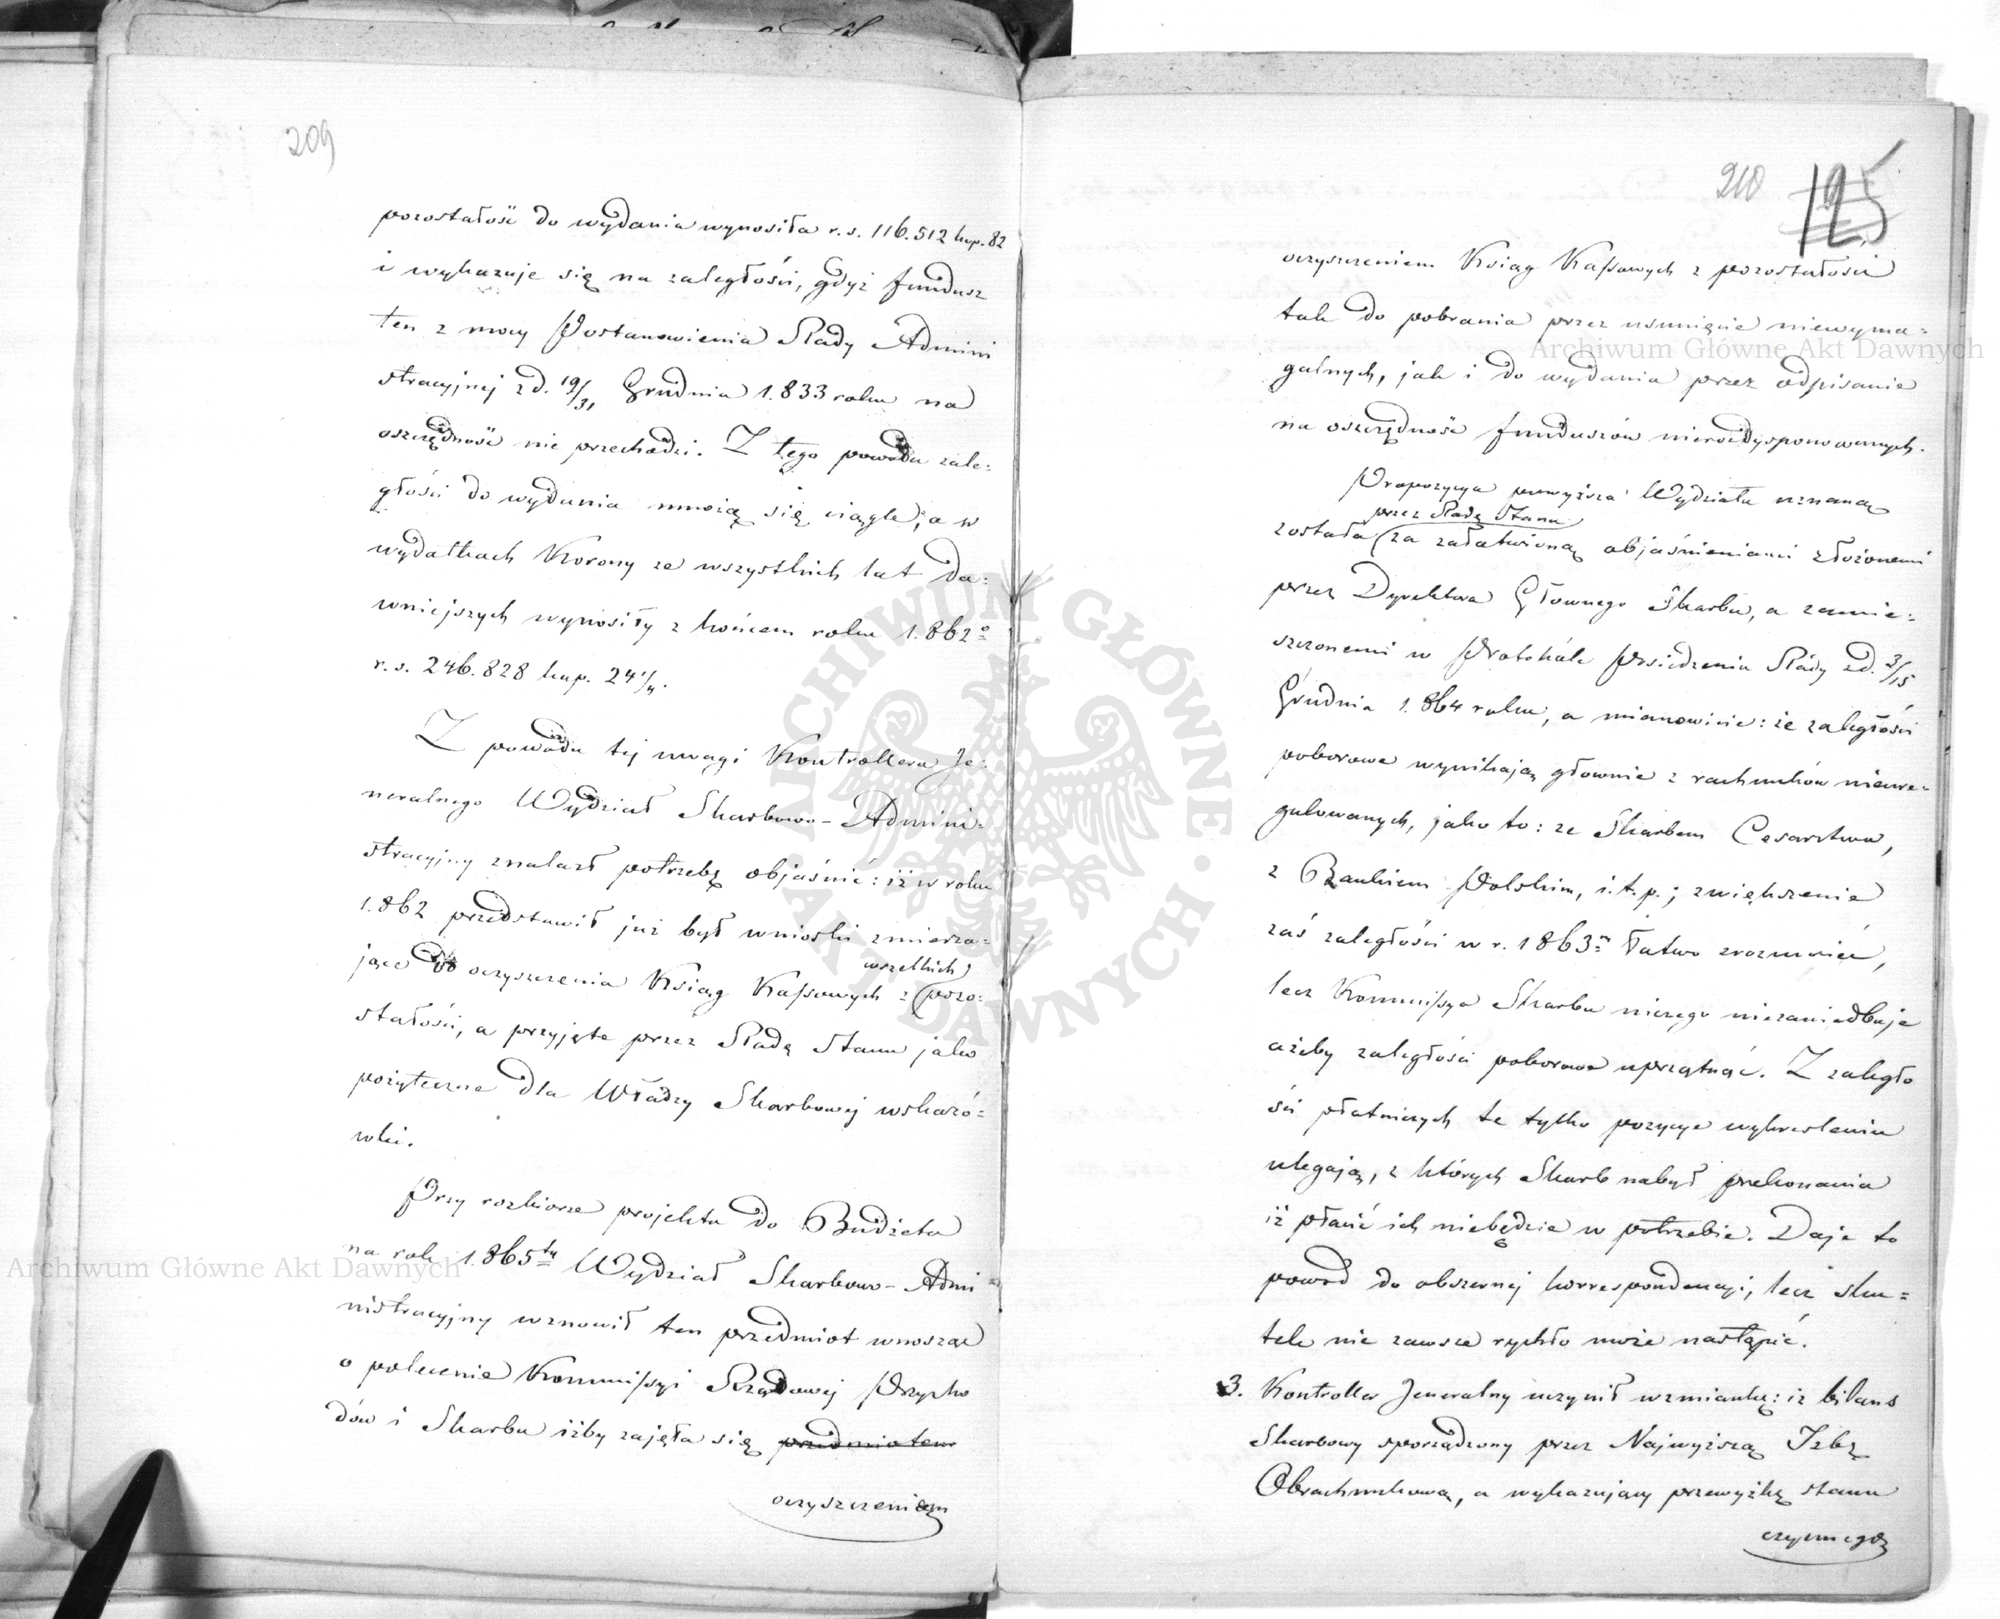 209
pozostałość do wydania wynosiła r. s. 116.512 kop. 82
i wykazuje się na zaległości, gdyż fundusz
ten z mocy Postanowienia Rady Admini
stracyjnej z d. 19/31 Grudnia 1.833 roku na
oszczędność nie przechodzi. Z tego powodu zale-
głości do wydania mnożą się ciągle, a w
wydatkach Korony ze wszystkich lat da-
wniejszych wynosiły z końcem roku 1.862º
r. s. 246.828 kop. 24 1/4.
Z powodu tej uwagi Kontrollera Je-
neralnego Wydział Skarbowo-Admini-
stracyjny znalazł potrzebę objaśnić: iż w roku
1.862 przedstawił już był wnioski zmierza-
wszelkich
jące do oczyszczenia Ksiąg Kassowych z pozo-
stałości, a przyjęte przez Radę Stanu jako
pożyteczne dla Władzy Skarbowej wskazó-
wki.
Przy rozbiorze projektu do Budżetu
na rok 1.865ty Wydział Skarbowo-Admi
nistracyjny wznowił ten przedmiot wnosząc
o polecenie Kommissyi Rządowej Przycho
dów i Skarbu iżby zajęła się przedmiotem
oczyszczeniem
210 125
oczyszczeniem Ksiąg Kassowych z pozostałości
tak do pobrania przez usunięcie niewyma-
galnych, jak i do wydania przez odpisanie
na oszczędność funduszów nierozdysponowanych.
Propozycya powyższa Wydziału uznaną
przez Radę Stanu
została za załatwioną objaśnieniami złożonemi
przez Dyrektora Głównego Skarbu, a zamie-
szczonemi w Protokóle Posiedzenia Rady z d. 3/15
Grudnia 1.864 roku, a mianowicie: że zaległości
poborowe wynikają głównie z rachunków nieure-
gulowanych, jako to: ze Skarbem Cesarstwa,
z Bankiem Polskim, i. t. p.; zwiększenie
zaś zaległości w r. 1863m łatwo zrozumieć,
lecz Kommissya Skarbu niczego niezaniedbuje
ażeby zaległości poborowe uprzątnąć. Z zaległo
ści płatniczych te tylko pozycye wykreśleniu
ulegają, z których Skarb nabył przekonania
iż płacić ich niebędzie w potrzebie. Daje to
powód do obszernej korrespondencyi, lecz sku-
tek nie zawsze rychło może nastąpić.
3. Kontroller Jeneralny uczynił wzmiankę: iż bilans
Skarbowy sporządzony przez Najwyższą Izbę
Obrachunkową, a wykazujący przewyżkę stanu
czynnego
Archiwum Główne Akt Dawnych
Archiwum Główne Akt Dawnych
ARCHIWUM GŁÓWNE AKT DAWNYCH